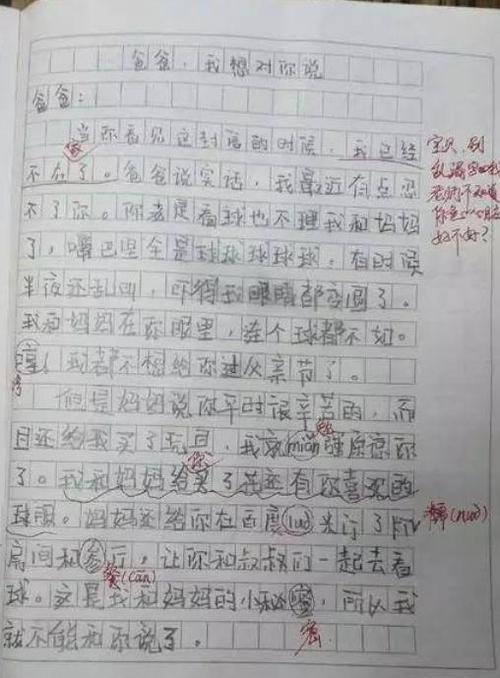 爸爸,我想对你说
爸爸:
当你看见这封信的时候,我已经
家
不在了。爸爸说实话,我最近有点忍
不了你。你老是看球也不理我和妈妈
了,嘴巴里全是球球球球球。有时候
半夜还乱叫,吓得我眼睛都变圆了。
我和妈妈在你眼里,连个球都不如。
哼!我都不想给你过父亲节了。
但是妈妈说你平时很辛苦的,而
且还给我买了玩具,我就miǎn强原谅你
勉
了。我和妈妈给买了花还有你喜欢的
你
球服。妈妈还给你在百度luò先订了
房间和参厅,让你和叔叔们一起去看
餐(cān)
球。这是我和妈妈的小秘蜜,所以我
密
就不能和你说了。
宝贝,别
好不好?
糯(nuò)